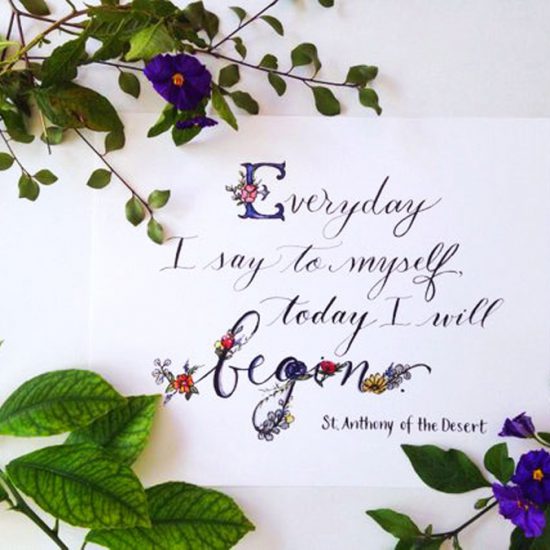 Everyday
I say to myself,
today I will
begin.
St. Anthony of the Desert